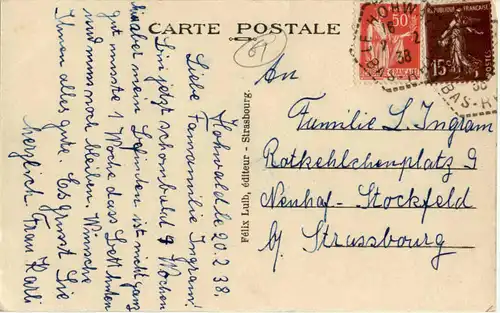 CARTE POSTALE
Hohwald le 20.2.38.
Liebe Fammilie Ingram!
Bin jetzt schon bald 9 Wochen
hier aber mein Befinden ist nicht ganz
gut musste 1 Woche das Bett hüten
und muss noch bleiben. Wünsche
Ihnen alles gute. Es grüsst Sie
herzlich Frau Karli
Félix Luib, éditeur - Strasbourg.
An
Familie L. Ingram
Rotkehlchenplatz 9
Neuhof - Stockfeld
b/ Strassbourg
50c
FRANÇAISE
RÉPUBLIQUE FRANÇAISE
15c
POSTES
LE HOHWALD
38
BAS-RHIN